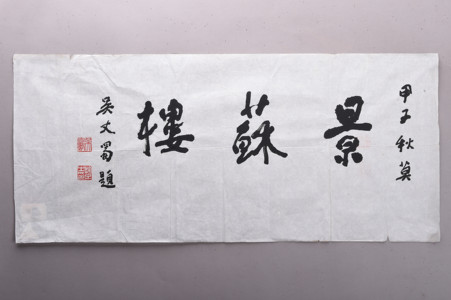 甲子秋莫
景蘇樓
吴丈蜀題